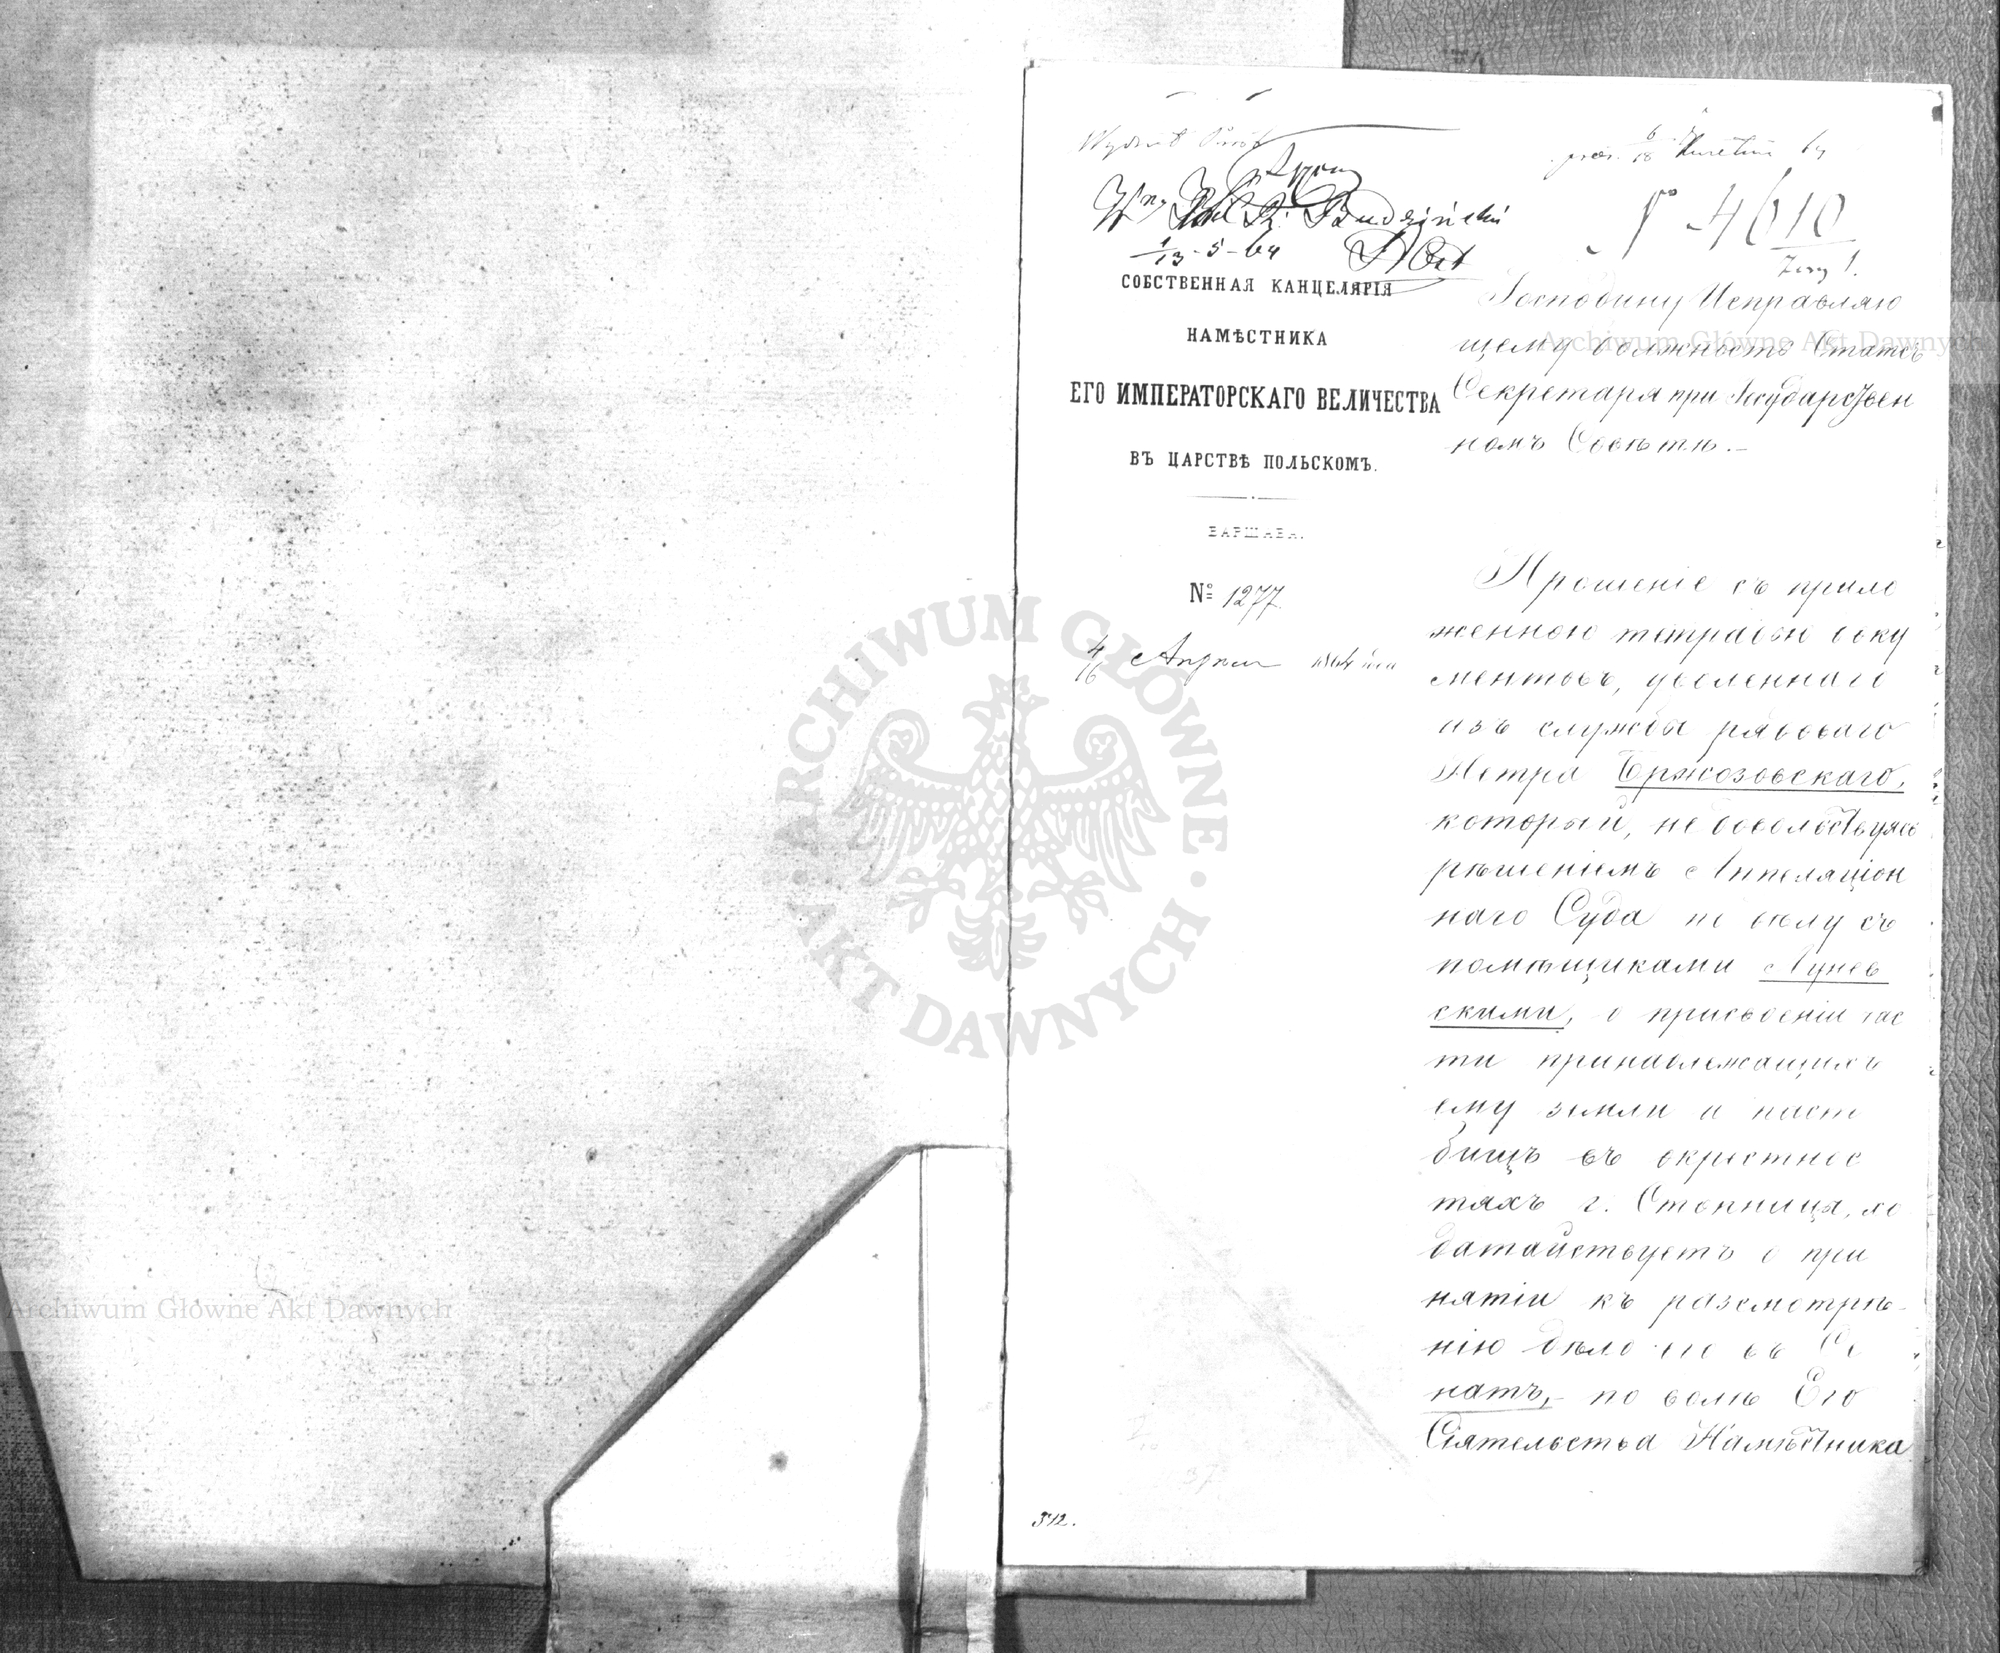 Wydział Próśb
pres. 6/18 Kwietnia 64
Budziński
1/13-5-64
№ 4610
СОБСТВЕННАЯ КАНЦЕЛЯРІЯ
НАМѢСТНИКА
ЕГО ИМПЕРАТОРСКАГО ВЕЛИЧЕСТВА
ВЪ ЦАРСТВѢ ПОЛЬСКОМЪ.
ВАРШАВА.
№ 1277
4/16 Апрѣля 1864 года
Господину Исправляю
щему должность Статсъ
Секретаря при Государствен
номъ Совѣтѣ.—
Прошеніе съ прило
женною тетрадью доку
ментовъ, уволеннаго
изъ службы рядоваго
Петра Бржозовскаго,
который, недовольствуясь
рѣшеніемъ Аппеляціон
наго Суда по дѣлу съ
помѣщиками Лунев
скими, о присвоеніи час
ти принадлежащихъ
ему земли и паст
бищъ въ окрестнос
тяхъ г. Стопница, хо
датайствуетъ о при
нятіи къ разсмотрѣ-
нію дѣло его въ Се
натъ,- по волѣ Его
Сіятельства Намѣстника
342.
ARCHIWUM GŁÓWNE
AKT DAWNYCH
Archiwum Główne Akt Dawnych
Archiwum Główne Akt Dawnych